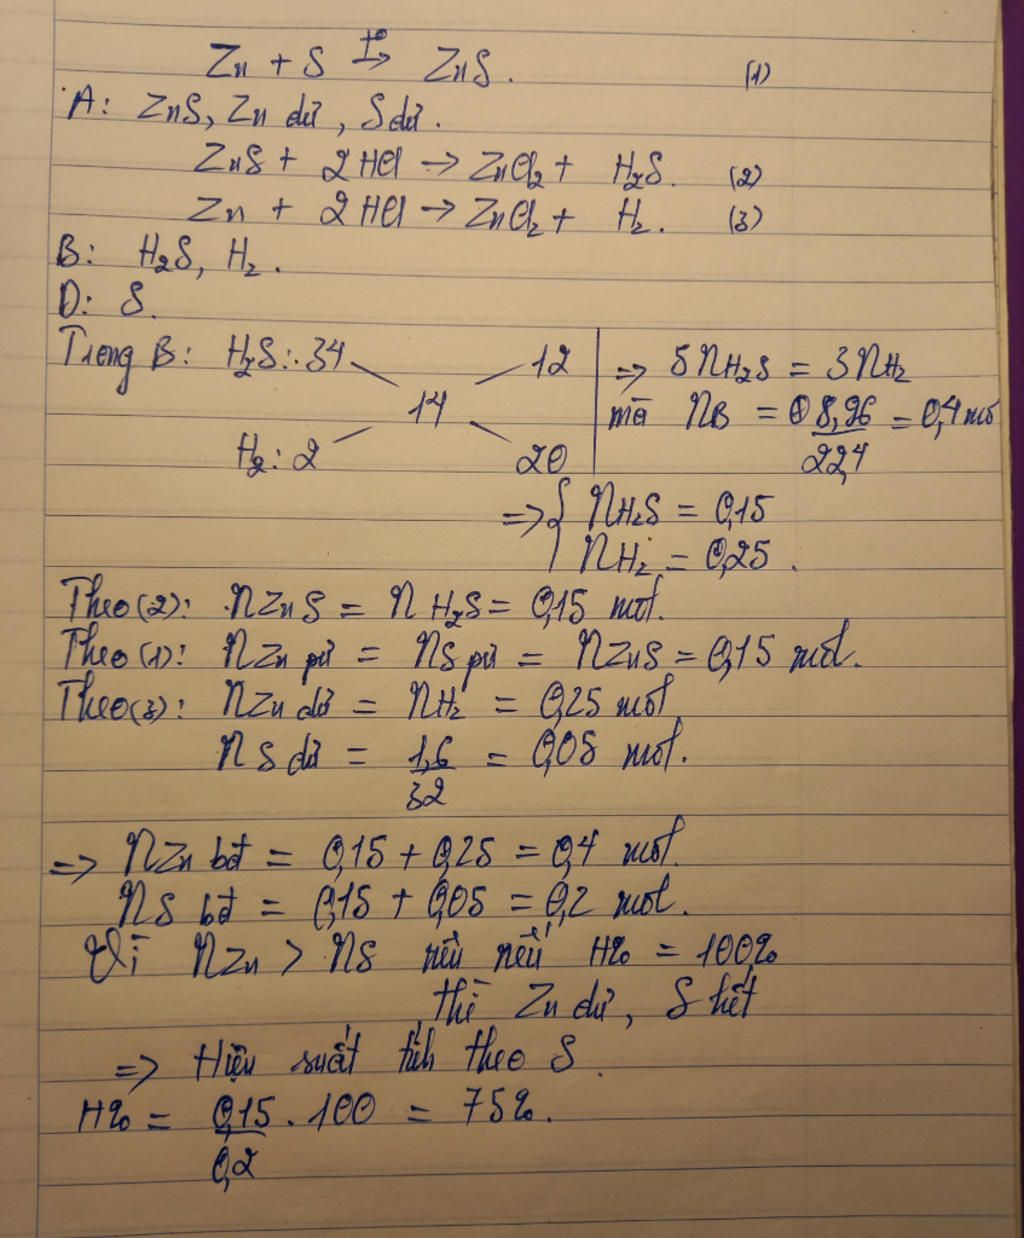 Zn + S t°→ ZnS. (1)
A: ZnS, Zn dư, S dư.
ZnS + 2HCl → ZnCl2 + H2S. (2)
Zn + 2HCl → ZnCl2 + H2. (3)
B: H2S, H2.
D: S.
Trong B: H2S: 34 12 => 5nH2S = 3nH2
14 mà nB = 8,96/22,4 = 0,4 mol
H2: 2 20
=> { nH2S = 0,15
nH2 = 0,25.
Theo (2): nZnS = nH2S = 0,15 mol.
Theo (1): nZn pứ = nS pứ = nZnS = 0,15 mol.
Theo (3): nZn dư = nH2 = 0,25 mol
nS dư = 1,6/32 = 0,05 mol.
=> nZn bđ = 0,15 + 0,25 = 0,4 mol.
nS bđ = 0,15 + 0,05 = 0,2 mol.
Vì nZn > nS nên nếu H% = 100%
thì Zn dư, S hết
=> Hiệu suất tính theo S.
H% = 0,15/0,2 . 100 = 75%.